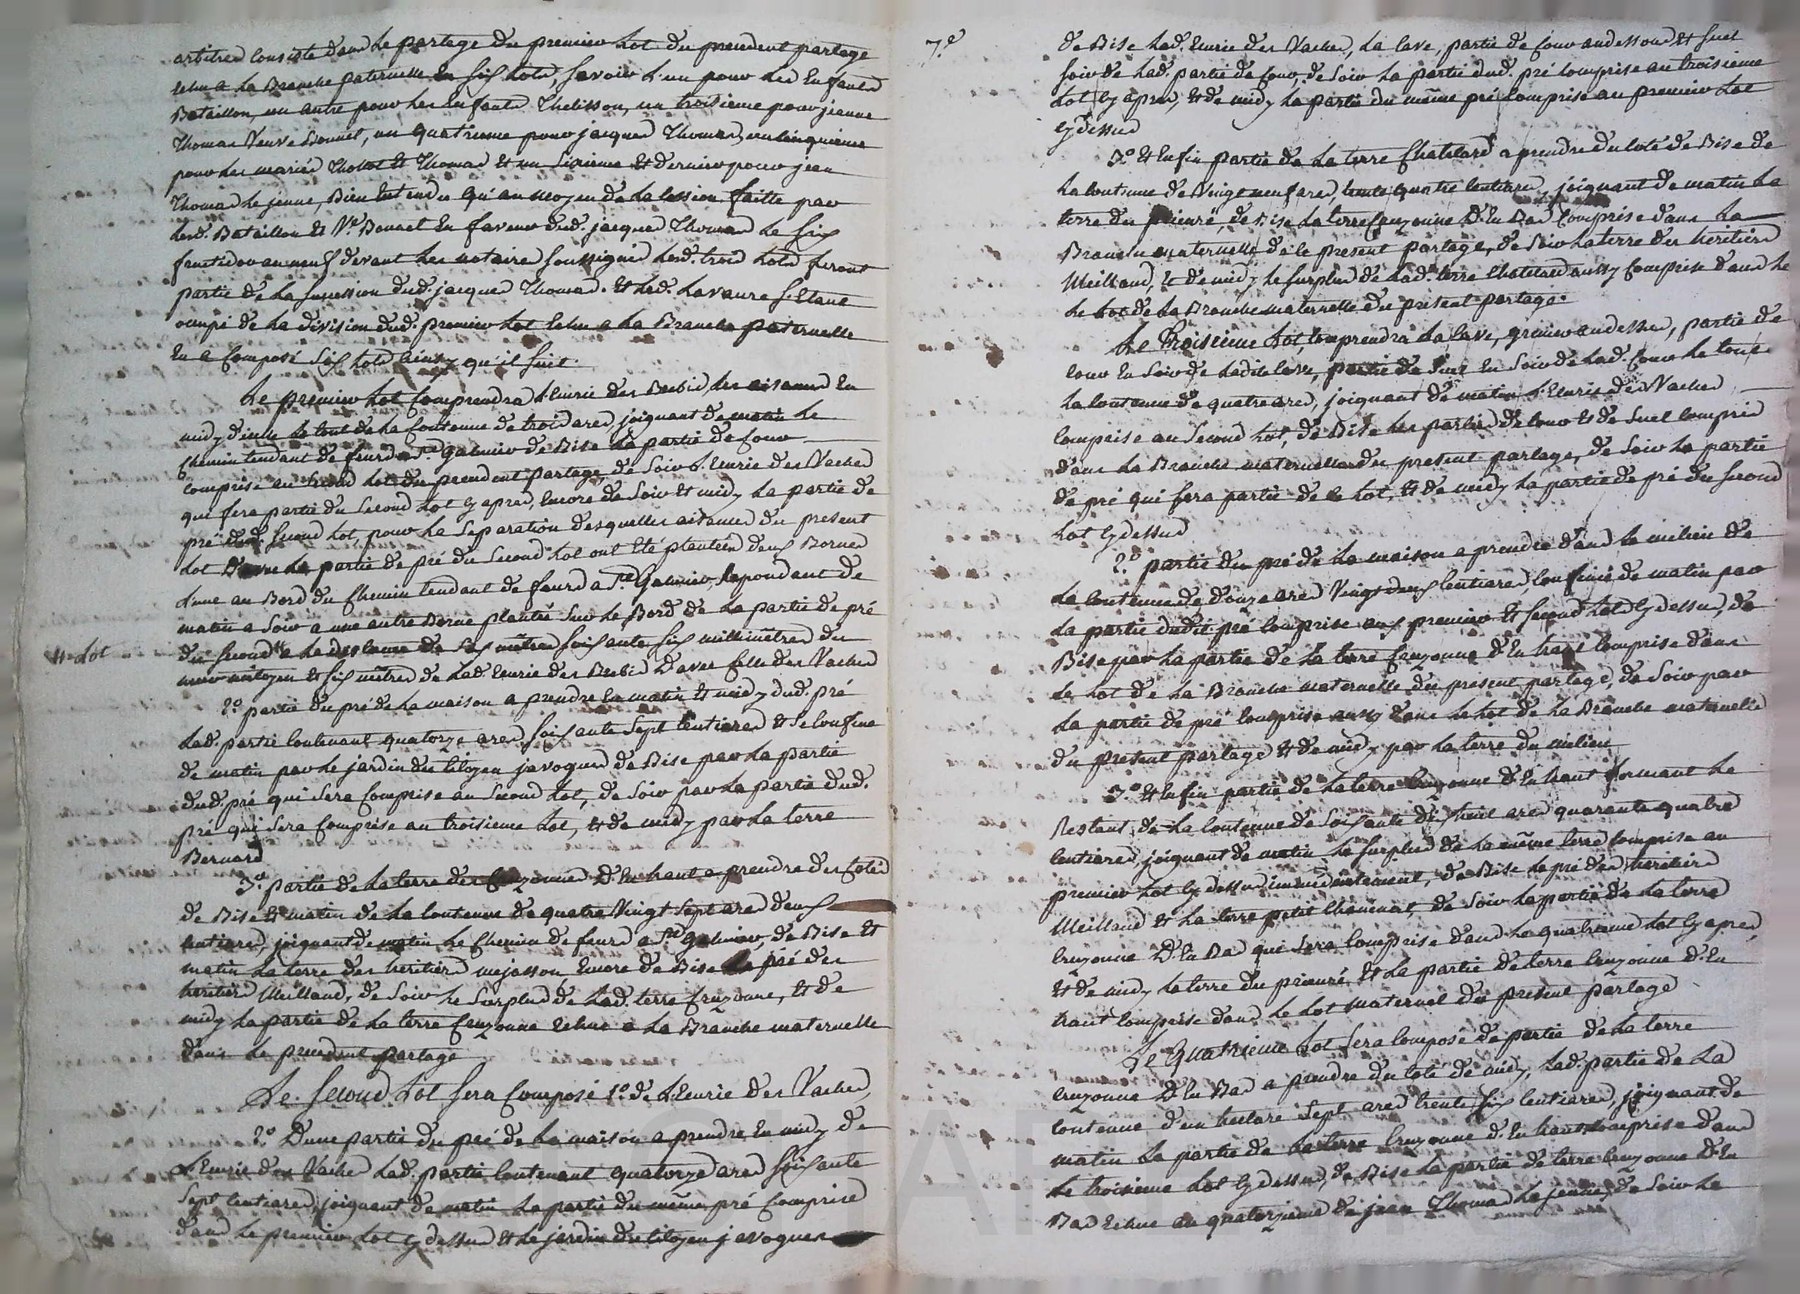 arbitres consiste dans le partage du premier lot du precedent partage
echu a la Branche paternelle en six lots, savoir l'un pour les Enfants
Bataillon, un autre pour les Enfants Thelisson, un troisieme pour jeanne
Thomas Veuve Bonnet, un quatrieme pour jacques Thomas, un cinquieme
pour les mariés Thomas et un sixieme et dernier pour jean
Thomas le jeune, Bien Entendu qu'au moyen de la cession faitte par
lesd. Bataillon et Ve. Bonnet En faveur dud. jacques Thomas le six
fructidor an neuf devant les notaires soussignés lesd. trois lots feront
partie de la succession dud. jacques Thomas. Et led. Lavaure s'Etant
occupé de la division dud. premier lot Echu a la Branche paternelle
En a Composé six lots ainsy qu'il suit
Le premier lot Comprendra l'Eurie des Brebis, les aisances En
midy d'icelle le tout de la Contenue de trois ares, joignant de matin le
Chemin tendant de feurs a St. Galmier de Bise la partie de Cour
comprise au second lot du precedent partage, de Soir l'Eurie des Vaches
qui fera partie du Second lot Cy apres, Encore de Soir et midy la partie de
pré dud. Second lot, pour la Separation desquelles aisances du present
lot D'avec la partie de pré du Second lot ont Eté plantées deux Bornes
l'une au Bord du Chemin tendant de feurs a St. Galmier, Repondant de
matin a Soir a une autre Borne plantée Sur le Bord de la partie de pré
du Second lot a la distance de Six mètres soixante six millimètres du
mur mitoyen et six mètres de lad. Eurie des Brebis D'avec Celle des Vaches
2.° partie du pré de la maison a prendre En matin et midy dud. pré
lad. partie Contenant quatorze ares soixante Sept Centiares et se Confine
de matin par le jardin du Citoyen javogues de Bise par la partie
dud. pré qui Sera Comprise au Second lot, de Soir par la partie dud.
pré qui sera Comprise au troisieme lot, et de midy par la terre
Bernard
3.° partie de la terre des Cruzonnes D'En haut a prendre des Cotés
de Bise et matin de la Contenue de quatre Vingt Sept ares deux
Centiares, joignant de matin le Chemin de feurs a St. Galmier, de Bise et
matin la terre des heritiers mejasson Encore de Bise le pré des
heritiers Meilland, de Soir le Surplus de lad. terre Cruzonne, et de
midy la partie de la terre Cruzonne Echue a la Branche maternelle
dans le precedent partage
Le Second lot sera Composé 1.° de l'Eurie des Vaches,
2.° D'une partie du pré de la maison a prendre En midy de
l'Eurie des Vaches lad. partie Contenant quatorze ares Soixante
Sept Centiares, joignant de matin la partie du même pré Comprise
dans le premier lot Cy dessus et le jardin du Citoyen javogues
et lot
7.e
de Bise lad. Eurie des Vaches, la Cave, partie de Cour au dessous et Suel
Soir de lad. partie de Cour, de Soir la partie dud. pré Comprise au troisieme
lot Cy apres, et de midy la partie du même pré Comprise au premier lot
Cy dessus
3.° et Enfin partie de la terre Chatelard a prendre du Coté de Bise de
la Contenue de Vingt neuf ares trente quatre Centiares, joignant de matin la
terre du prieuré, de Bise la terre Cruzonne D'En Bas Comprise dans la
Branche maternelle de le present partage, de Soir la terre des heritiers
Meilland, et de midy le surplus de lad. terre Chatelard aussy Comprise dans le
le lot de la Branche maternelle du present partage.
Le Troisieme lot, Comprendra la Cave, grenier au dessus, partie de
Cour En Soir de ladite Cave, partie de Suel En Soir de lad. Cour le tout
la Contenue de quatre ares, joignant de matin l'Eurie des Vaches
Comprise au Second lot, de Bise les parties de Cour et de Suel Compris
dans la Branche maternelle du present partage, de Soir la partie
de pré qui fera partie de ce lot, et de midy la partie de pré du second
lot Cy dessus
2.° partie du pré de la maison a prendre dans le milieu de
la Contenue de Douze ares Vingt deux Centiares, Confiné de matin par
la partie dudit pré Comprise aux premier et Second lots Cy dessus, de
Bise par la partie de la terre Cruzonne D'En haut Comprise dans
le lot de la Branche maternelle du present partage, de Soir par
la partie de pré Comprise aussy dans le lot de la Branche maternelle
du present partage et de midy par la terre du milieu
3.° et Enfin partie de la terre Cruzonne D'En haut formant le
Restant de la Contenue de Soixante dix huit ares quarante quatre
Centiares, joignant de matin le surplus de la même terre Comprise au
premier lot Cy dessus immediatement, de Bise le pré des heritiers
Meilland et la terre petit Chenevat, de Soir la partie de la terre
Cruzonne D'En Bas qui Sera Comprise dans le quatrieme lot Cy apres,
et de midy la terre du prieuré et la partie de terre Cruzonne D'En
haut Comprise dans le lot maternel du present partage
Le Quatrieme lot sera Composé de partie de la terre
Cruzonne D'En Bas a prendre du Coté de midy, lad. partie de la
Contenue d'un hectare Sept ares trente six Centiares, joignant de
matin la partie de la terre Cruzonne D'En haut Comprise dans
le troisieme lot Cy dessus, de Bise la partie de terre Cruzonne D'En
Bas Echue au quatorzieme de jean Thomas le jeune, de Soir le